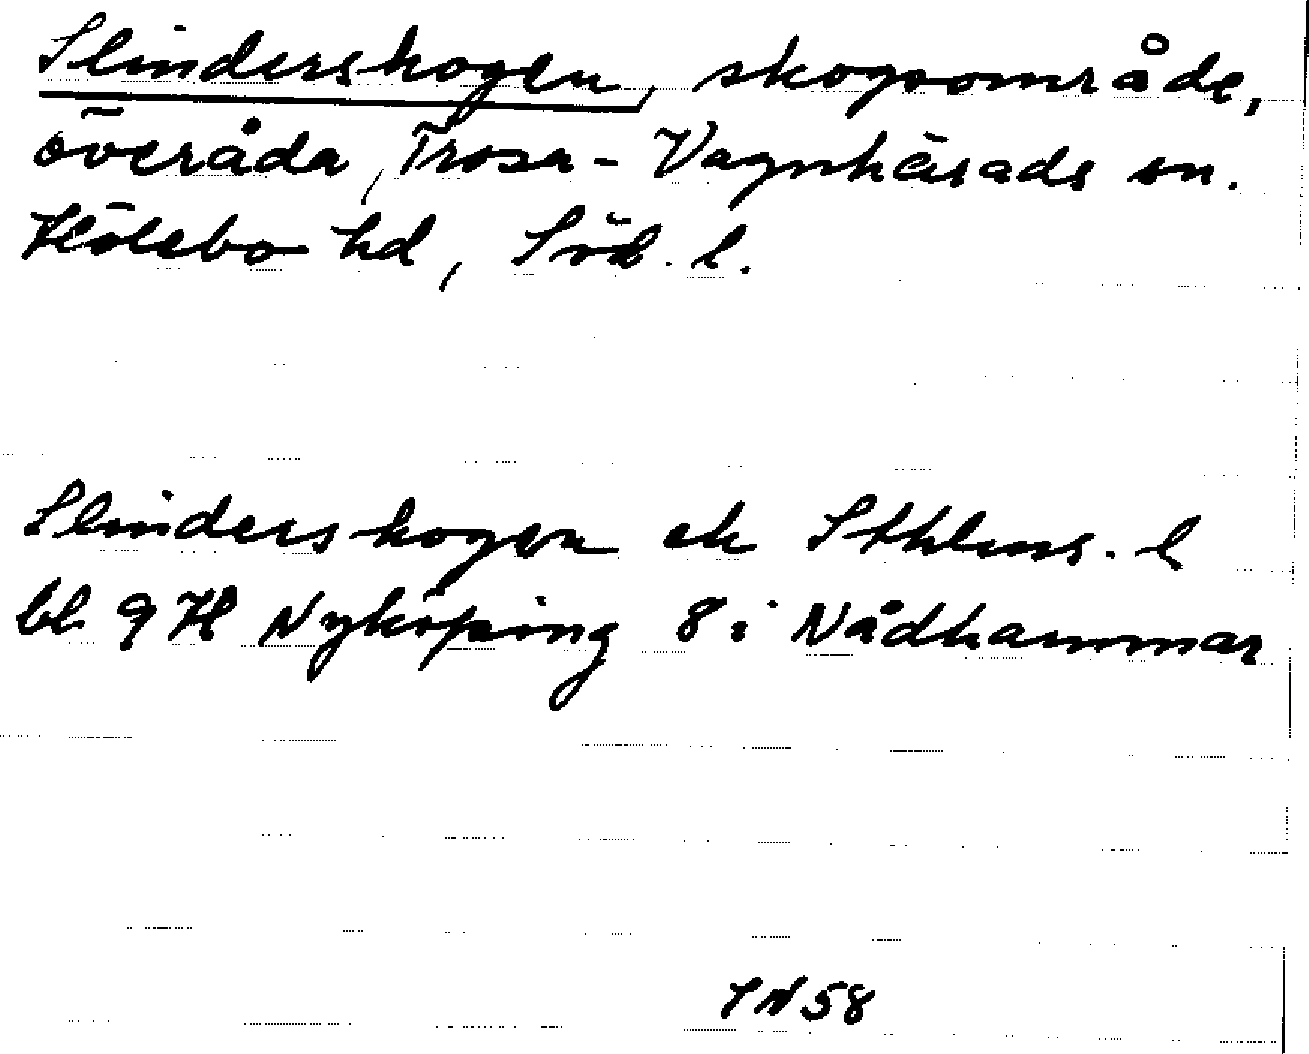 Slinderskogen, skogsområde,
överåda, Trosa-Vagnhärads sn.
Hölebo hd, Söd. l.
Slinderskogen ek Sthlms. l
bl. 9 H Nyköping 8 i Nådhammar
SN 58